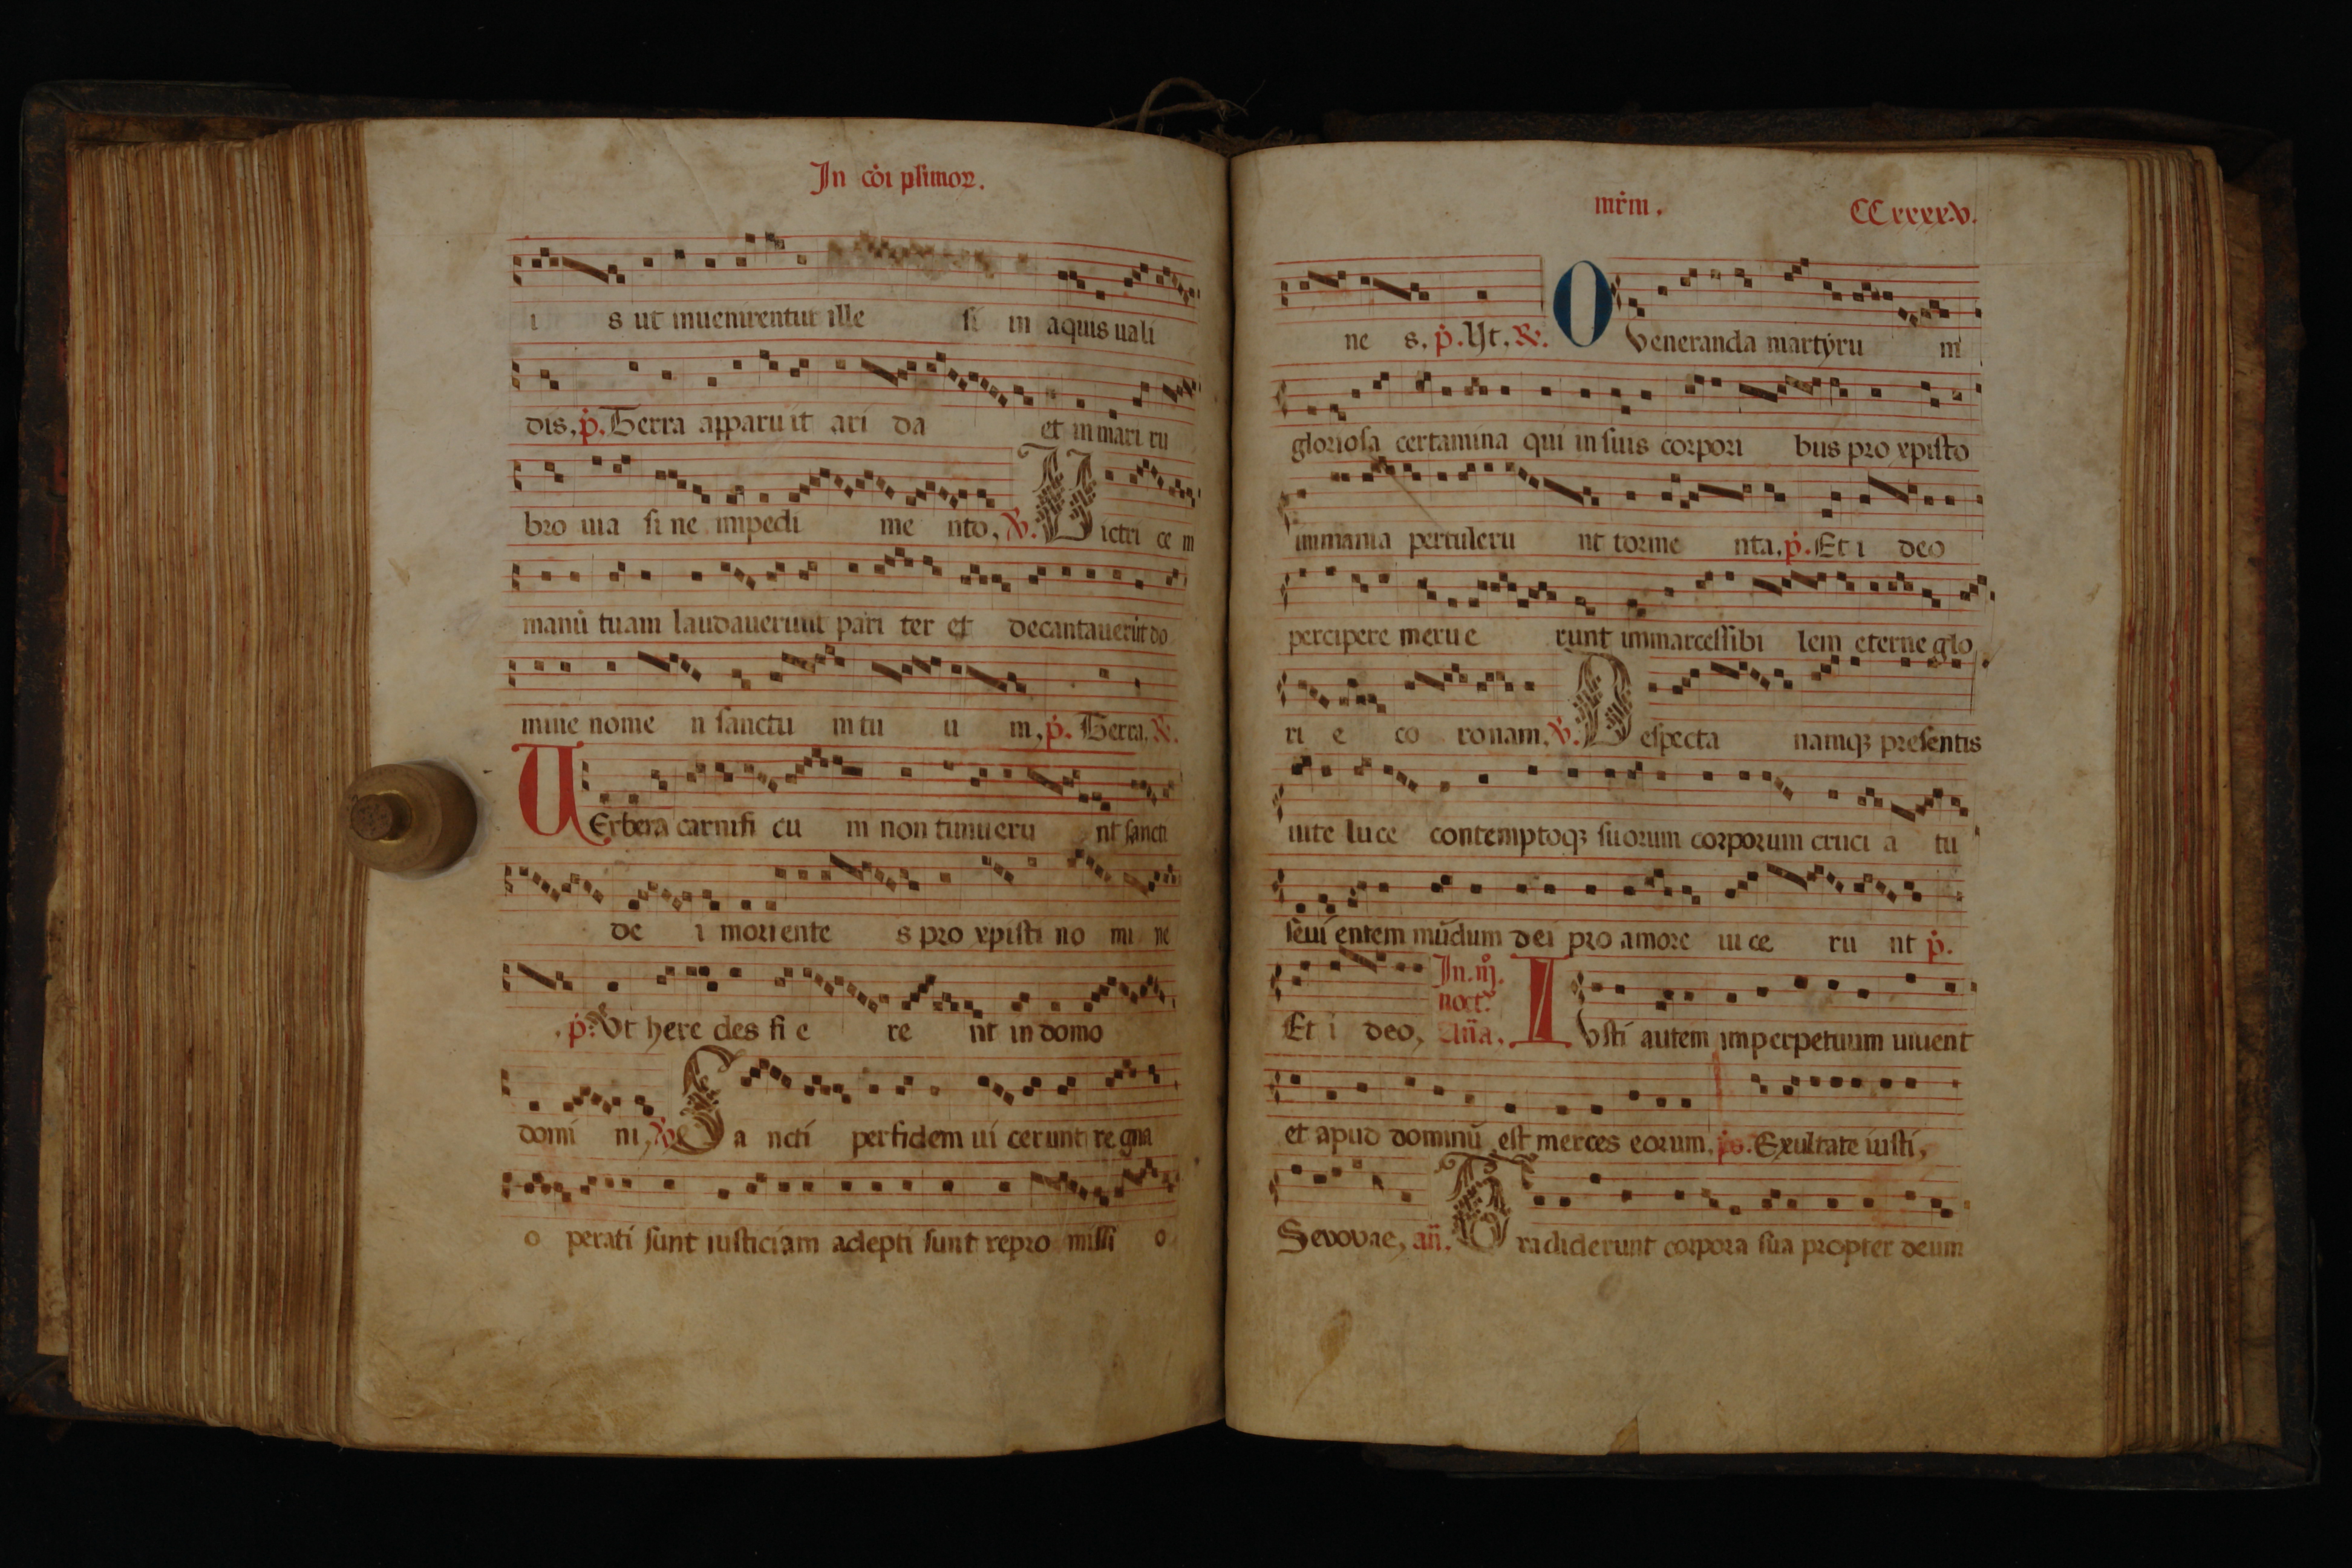 In cȯi plimoꝝ.
i s ut inuenirentur ille si in aquis uali
dis, p̉. Terra apparuit ari da et in mari ru
bro uia si ne impedi me nto, ℣. Uictri ce m
manū tuam laudauerunt pari ter et decantauerūt do
mine nome n sanctu m tu u m, p̉. Terra, ℟.
UErbera carnifi cu m non timueru nt sancti
de i moriente s pro xpisti no mi ne
p̉. Vt here des fi e re nt in domo
domi ni, ℣. Sa ncti per fidem ui cerunt re gna
o perati sunt iusticiam adepti sunt repro missi o
mr̄m. CCxxxxv.
ne s, p̉. Ut, ℟. O veneranda martyru m
gloriosa certamina qui in suis corpori bus pro xpisto
immania pertuleru nt torme nta, p̉. Et i deo
percipere merue runt immarcessibi lem eterne glo
ri e co ronam, ℣. Despecta namqꝫ presentis
uite luce contemptoqꝫ suorum corporum cruci a tu
seui entem mūdum dei pro amore uice ru nt p̉.
Et i deo, In. iij. noct. Aña. IVsti autem imperpetuum uiuent
et apud dominū est merces eorum, p̄s. Exultate iusti,
Sevovae, añ. Tradiderunt corpora sua propter deum